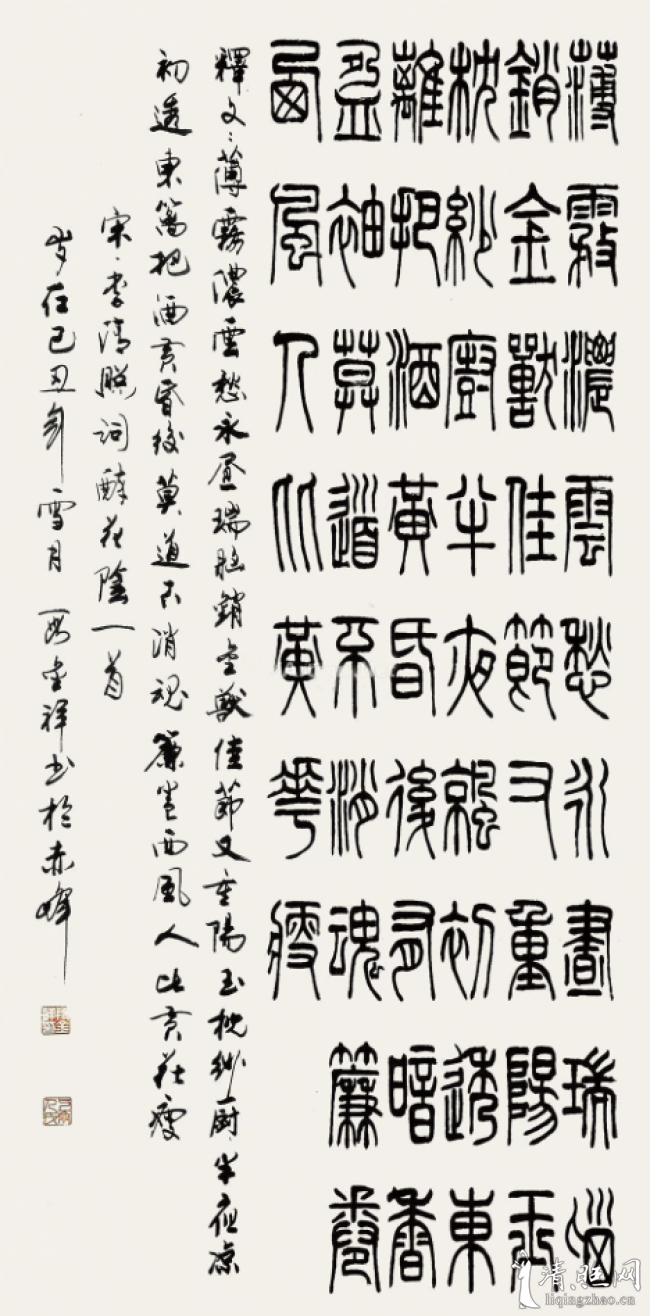 薄霧濃雲愁永晝瑞腦
銷金獸佳節又重陽玉
枕紗廚半夜涼初透東
離把酒黃昏後有暗香
盈袖莫道不消魂簾卷
西風人比黃花瘦
釋文：薄霧濃雲愁永晝瑞腦銷金獸佳節又重陽玉枕紗厨半夜涼
初透東籬把酒黃昏後莫道不消魂簾卷西風人比黃花瘦
宋·李清照詞醉花陰一首
岁在己丑年雪月 祥书於赤峰
清照网
liqingzhao.cn